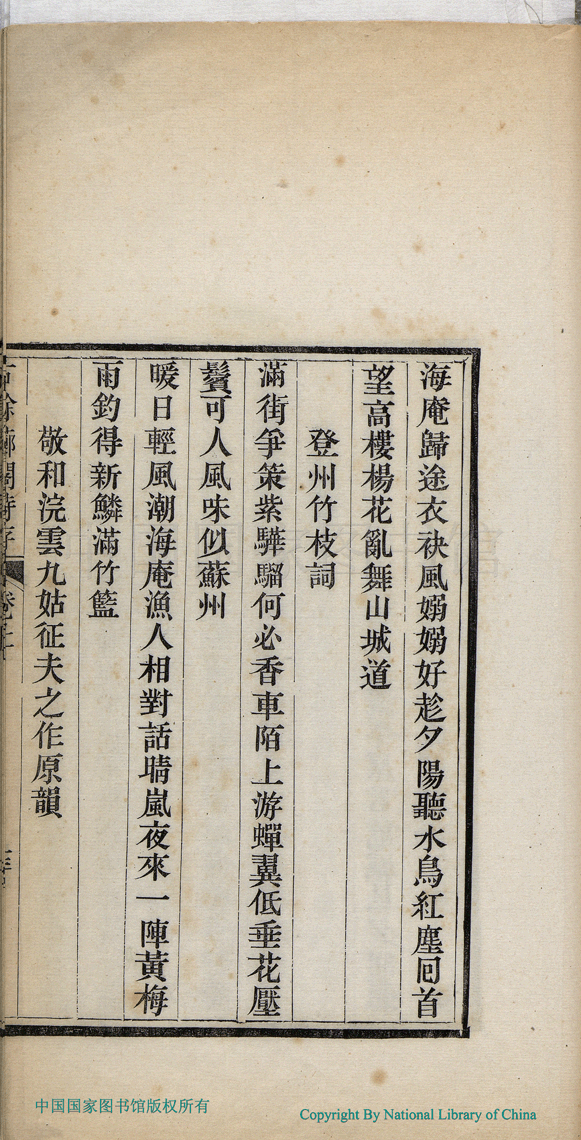 海庵歸途衣袂風嫋嫋好趁夕陽聽水鳥紅塵回首
望高樓楊花亂舞山城道
登州竹枝詞
滿街爭策紫驊騮何必香車陌上游蟬翼低垂花壓
鬢可人風味似蘇州
暖日輕風潮海庵漁人相對話晴嵐夜來一陣黃梅
雨釣得新鱗滿竹籃
敬和浣雲九姑征夫之作原韻
中国国家图书馆版权所有
Copyright By National Library of China